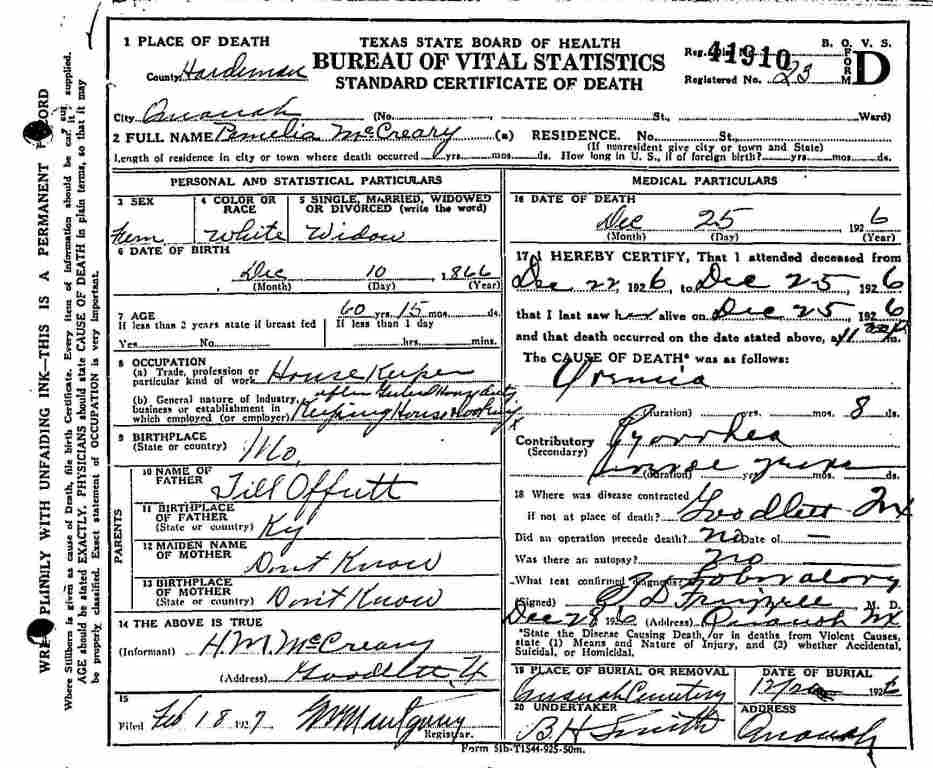 1 PLACE OF DEATH
TEXAS STATE BOARD OF HEALTH
BUREAU OF VITAL STATISTICS
STANDARD CERTIFICATE OF DEATH
B. O. V. S.
FORM D
Reg. Dist. No. 41910
Registered No. 23
County Hardeman
City Quanah (No. St., Ward)
2 FULL NAME Pemelia McCreary (a) RESIDENCE. No. St.
(If nonresident give city or town and State)
Length of residence in city or town where death occurred yrs. mos. ds. How long in U. S., if of foreign birth? yrs. mos. ds.
PERSONAL AND STATISTICAL PARTICULARS
3 SEX 4 COLOR OR RACE 5 SINGLE, MARRIED, WIDOWED OR DIVORCED (write the word)
Fem White Widow
6 DATE OF BIRTH
Dec 10 1866
(Month) (Day) (Year)
7 AGE 60 yrs. 15 mos. ds.
If less than 2 years state if breast fed If less than 1 day
Yes No hrs. mins.
8 OCCUPATION
(a) Trade, profession or particular kind of work House Keeper
(b) General nature of Industry, business or establishment in which employed (or employer) Keeping House
9 BIRTHPLACE
(State or country) Mo.
PARENTS
10 NAME OF FATHER Till Offutt
11 BIRTHPLACE OF FATHER
(State or country) Ky
12 MAIDEN NAME OF MOTHER Don't Know
13 BIRTHPLACE OF MOTHER
(State or country) Don't Know
14 THE ABOVE IS TRUE
(Informant) H. M. McCreary
(Address) Goodlett
15
Filed Feb 18 1927 Montgomery
Registrar.
MEDICAL PARTICULARS
16 DATE OF DEATH
Dec 25 1926
(Month) (Day) (Year)
17 I HEREBY CERTIFY, That I attended deceased from
Dec 22, 1926, to Dec 25, 1926
that I last saw her alive on Dec 25 1926
and that death occurred on the date stated above, at 11 m.
The CAUSE OF DEATH* was as follows:
Uremia
(Duration) yrs. mos. 8 ds.
Contributory Pyorrhea
(Secondary)
(duration) yrs. mos. ds.
18 Where was disease contracted
if not at place of death? Goodlett Tex
Did an operation precede death? no Date of —
Was there an autopsy? no
What test confirmed diagnosis? Laboratory
(Signed) Frizzell M. D.
Dec 28 1926 (Address) Quanah Tex
*State the Disease Causing Death, or in deaths from Violent Causes, state (1) Means and Nature of Injury, and (2) whether Accidental, Suicidal, or Homicidal.
19 PLACE OF BURIAL OR REMOVAL DATE OF BURIAL
Quanah Cemetery 1926
20 UNDERTAKER ADDRESS
B H Smith Quanah
Form 51b-T1544-925-50m.
PLAINLY WITH UNFAIDING INK—THIS IS A PERMANENT RECORD
Where Stillborn is given as cause of Death, file birth Certificate. Every item of information should be carefully supplied.
AGE should be stated EXACTLY. PHYSICIANS should state CAUSE OF DEATH in plain terms, so that it may
be properly classified. Exact statement of OCCUPATION is very important.